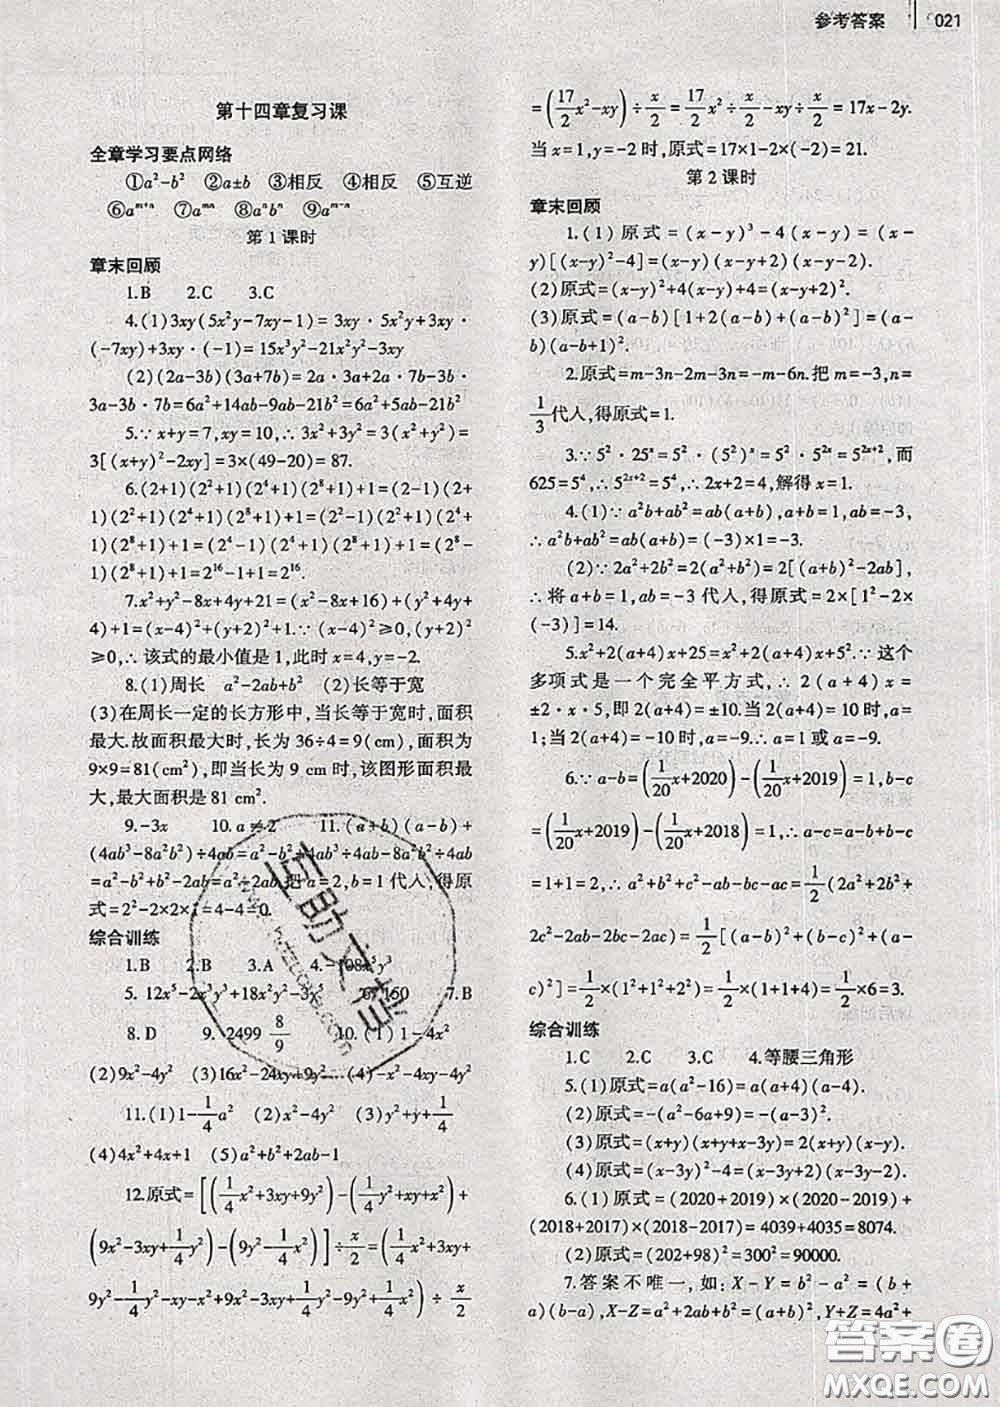 参考答案 021
第十四章复习课
全章学习要点网络
①a²-b² ②a±b ③相反 ④相反 ⑤互逆
⑥a^{m+n} ⑦a^{mn} ⑧a^n b^n ⑨a^{m-n}
第1课时
章末回顾
1.B 2.C 3.C
4.(1)3xy(5x²y-7xy-1)=3xy·5x²y+3xy·
(-7xy)+3xy·(-1)=15x³y²-21x²y²-3xy
(2)(2a-3b)(3a+7b)=2a·3a+2a·7b-3b·
3a-3b·7b=6a²+14ab-9ab-21b²=6a²+5ab-21b²
5.∵x+y=7,xy=10,∴3x²+3y²=3(x²+y²)=
3[(x+y)²-2xy]=3×(49-20)=87.
6.(2+1)(2²+1)(2⁴+1)(2⁸+1)+1=(2-1)(2+
1)(2²+1)(2⁴+1)(2⁸+1)+1=(2²-1)(2²+1)(2⁴+
1)(2⁸+1)+1=(2⁴-1)(2⁴+1)(2⁸+1)+1=(2⁸-
1)(2⁸+1)+1=2¹⁶-1+1=2¹⁶.
7.x²+y²-8x+4y+21=(x²-8x+16)+(y²+4y+
4)+1=(x-4)²+(y+2)²+1.∵(x-4)²≥0,(y+2)²
≥0,∴该式的最小值是1,此时x=4,y=-2.
8.(1)周长 a²-2ab+b² (2)长等于宽
(3)在周长一定的长方形中,当长等于宽时,面积
最大.故面积最大时,长为36÷4=9(cm),面积为
9×9=81(cm²),即当长为9 cm时,该图形面积最
大,最大面积是81 cm².
9.-3x 10.a≠2 11.(a+b)(a-b)+
(4ab³-8a²b²)÷4ab=a²-b²+4ab³÷4ab-8a²b²÷4ab
=a²-b²+b²-2ab=a²-2ab.把a=2,b=1代人,得原
式=2²-2×2×1=4-4=0.
综合训练
1.B 2.B 3.A 4.-108x⁵y³
5. 12x⁵-2x³y³+18x²y²-3y⁵ 6. 150 7.B
8.D 9. 2499 8/9 10.(1)1-4x²
(2)9x²-4y² (3)16x²-24xy+9y² (4)-x²-4xy-4y²
11.(1)1-1/4a² (2)x²-4y² (3)y²+y+1/4
(4)4x²+4x+1 (5)a²+b²+2ab-1
12.原式=[(1/4x²+3xy+9y²)-(1/4y²+xy+x²)+
(9x²-3xy+1/4y²)-(9y²-1/4x²)]÷x/2=(1/4x²+3xy+
9y²-1/4y²-xy-x²+9x²-3xy+1/4y²-9y²+1/4x²)÷x/2
=(17/2x²-xy)÷x/2=17/2x²÷x/2-xy÷x/2=17x-2y.
当x=1,y=-2时,原式=17×1-2×(-2)=21.
第2课时
章末回顾
1.(1)原式=(x-y)³-4(x-y)=(x-
y)[(x-y)²-4]=(x-y)(x-y+2)(x-y-2).
(2)原式=(x-y)²+4(x-y)+4=(x-y+2)².
(3)原式=(a-b)[1+2(a-b)+(a-b)²]=(a-
b)(a-b+1)².
2.原式=m-3n-2m-3n=-m-6n.把m=-3,n=
1/3代人,得原式=1.
3.∵5²·25^x=5²·(5²)^x=5²·5^{2x}=5^{2x+2},而
625=5⁴,∴5^{2x+2}=5⁴,∴2x+2=4,解得x=1.
4.(1)∵a²b+ab²=ab(a+b),a+b=1,ab=-3,
∴a²b+ab²=ab(a+b)=(-3)×1=-3.
(2)∵2a²+2b²=2(a²+b²)=2[(a+b)²-2ab],
∴将a+b=1,ab=-3代人,得原式=2×[1²-2×
(-3)]=14.
5.x²+2(a+4)x+25=x²+2(a+4)x+5².∵这个
多项式是一个完全平方式,∴2(a+4)x=
±2·x·5,即2(a+4)=±10.当2(a+4)=10时,a=
1;当2(a+4)=-10时,a=-9.∴a=1或a=-9.
6.∵a-b=(1/20x+2020)-(1/20x+2019)=1,b-c
=(1/20x+2019)-(1/20x+2018)=1,∴a-c=a-b+b-c
=1+1=2,∴a²+b²+c²-ab-bc-ac=1/2(2a²+2b²+
2c²-2ab-2bc-2ac)=1/2[(a-b)²+(b-c)²+(a-
c)²]=1/2×(1²+1²+2²)=1/2×(1+1+4)=1/2×6=3.
综合训练
1.C 2.C 3.C 4.等腰三角形
5.(1)原式=a(a²-16)=a(a+4)(a-4).
(2)原式=-(a²-6a+9)=-(a-3)².
(3)原式=(x+y)(x+y+x-3y)=2(x+y)(x-y).
(4)原式=(x-3y)²-4=(x-3y+2)(x-3y-2).
6.(1)原式=(2020+2019)×(2020-2019)+
(2018+2017)×(2018-2017)=4039+4035=8074.
(2)原式=(202+98)²=300²=90000.
7.答案不唯一,如:X-Y=b²-a²=(b+
a)(b-a),X-Z=a²+2ab+b²=(a+b)²,Y+Z=4a²+
互助文档
答案圈
MXQE.COM